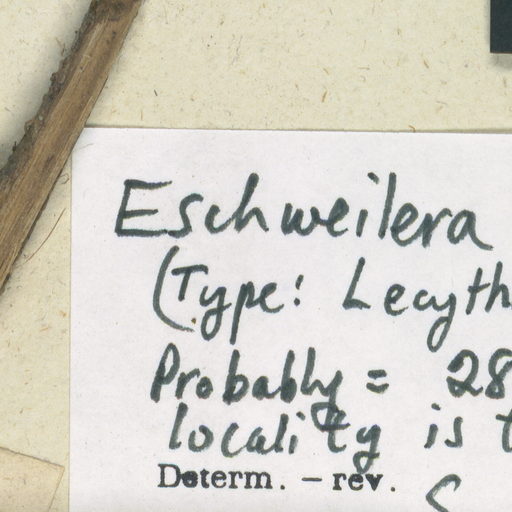 Eschweilera
(Type: Lecyth
Probably = 28
locality is t
Determ. — rev.
S